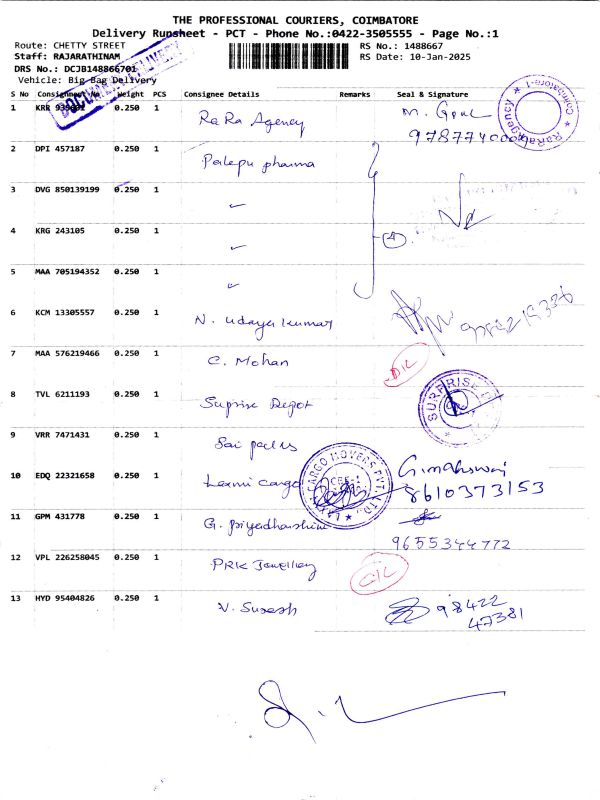 THE PROFESSIONAL COURIERS, COIMBATORE
Delivery Runsheet - PCT - Phone No.:0422-3505555 - Page No.:1
Route: CHETTY STREET
RS No.: 1488667
Staff: RAJARATHINAM
RS Date: 10-Jan-2025
DRS No.: DCJB148866701
Vehicle: Big Bag Delivery
DOCUMENT DELIVERY
S No Consignment No Weight PCS Consignee Details Remarks Seal & Signature
1 KRR 0.250 1 RaRa Agency M. Gopal
RaRa Agency ★ Coimbatore-1 ★
2 DPI 457187 0.250 1 Palepu pharma
3 DVG 850139199 0.250 1 〃
4 KRG 243105 0.250 1 〃 4
5 MAA 705194352 0.250 1 〃
6 KCM 13305557 0.250 1 N. Udaya kumar
7 MAA 576219466 0.250 1 C. Mohan
8 TVL 6211193 0.250 1 Suprise Depot
SURPRISE
9 VRR 7471431 0.250 1 Sai
10 EDQ 22321658 0.250 1 Laxmi cargo
LAXMI CARGO MOVERS PVT. LTD. ★
CBE-1
8610373153
11 GPM 431778 0.250 1 G. Priyadharshini
9655344772
12 VPL 226258045 0.250 1 PRK Jewellery
13 HYD 95404826 0.250 1 V. Suresh 98422
47381